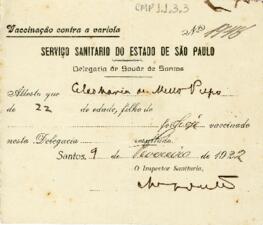 CMP 1.1.3.3
Vaccinação contra a variola Nº
SERVIÇO SANITARIO DO ESTADO DE SÃO PAULO
Delegacia de Saude de Santos
Attesto que de Mello
de 22 de edade, filho de
foi hoje vaccinado
nesta Delegacia
Santos, 9 de Fevereiro de 1922
O Inspector Sanitario,